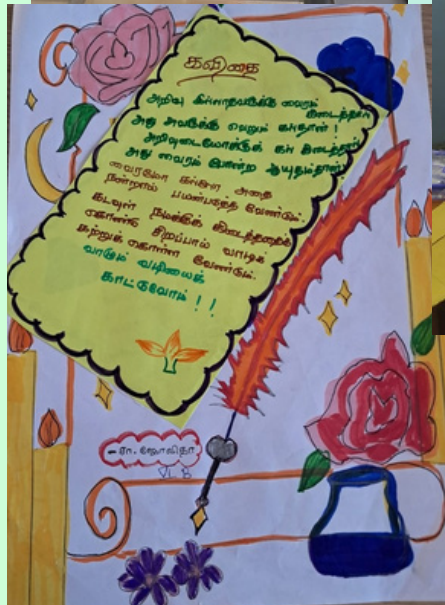 கவிதை
அறிவு இல்லாதவருக்கு வைரம்
கிடைத்தால்
அது அவருக்கு வெறும் கல்தான் !
அறிவுடையோருக்குக் கல் கிடைத்தால்
அது வைரம் போன்ற ஆயுதம்தான்
வைரமோ கல்லோ அதை
நன்றாய் பயன்படுத்த வேண்டும்.
கடவுள் நமக்குக் கிடைத்ததைக்
கொண்டு சிறப்பாய் வாழக்
கற்றுக் கொள்ள வேண்டும்.
வாழும் வழியைக்
காட்டுவோம் ! !
- ரா. ஜோவிதா
VI. B